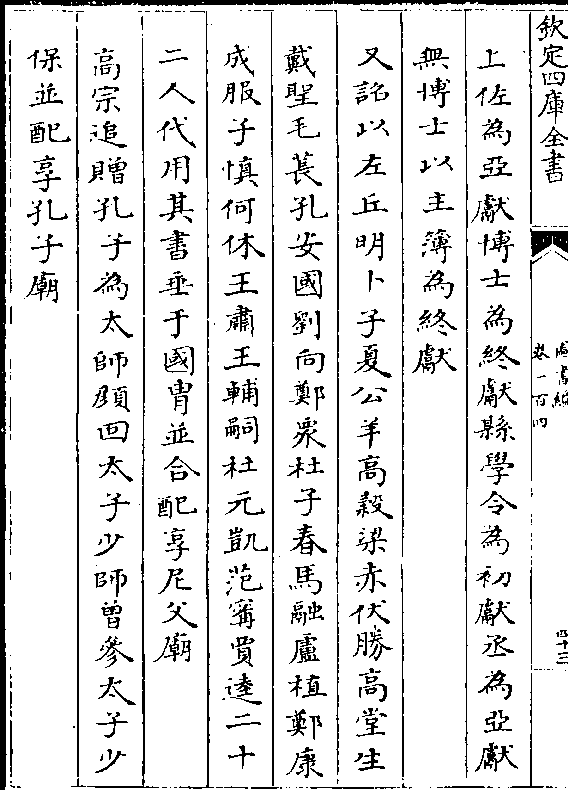 欽定四庫全書
卷一百四
四十三
上佐為亞獻博士為終獻縣學令為初獻丞為亞獻
無博士以主簿為終獻
又詔以左丘明卜子夏公羊高穀梁赤伏勝高堂生
戴聖毛萇孔安國劉向鄭衆杜子春馬融盧植鄭康
成服子慎何休王肅王輔嗣杜元凱范甯賈逵二十
二人代用其書垂于國胄並合配享尼父廟
高宗追贈孔子為太師顔回太子少師曾參太子少
保並配享孔子廟